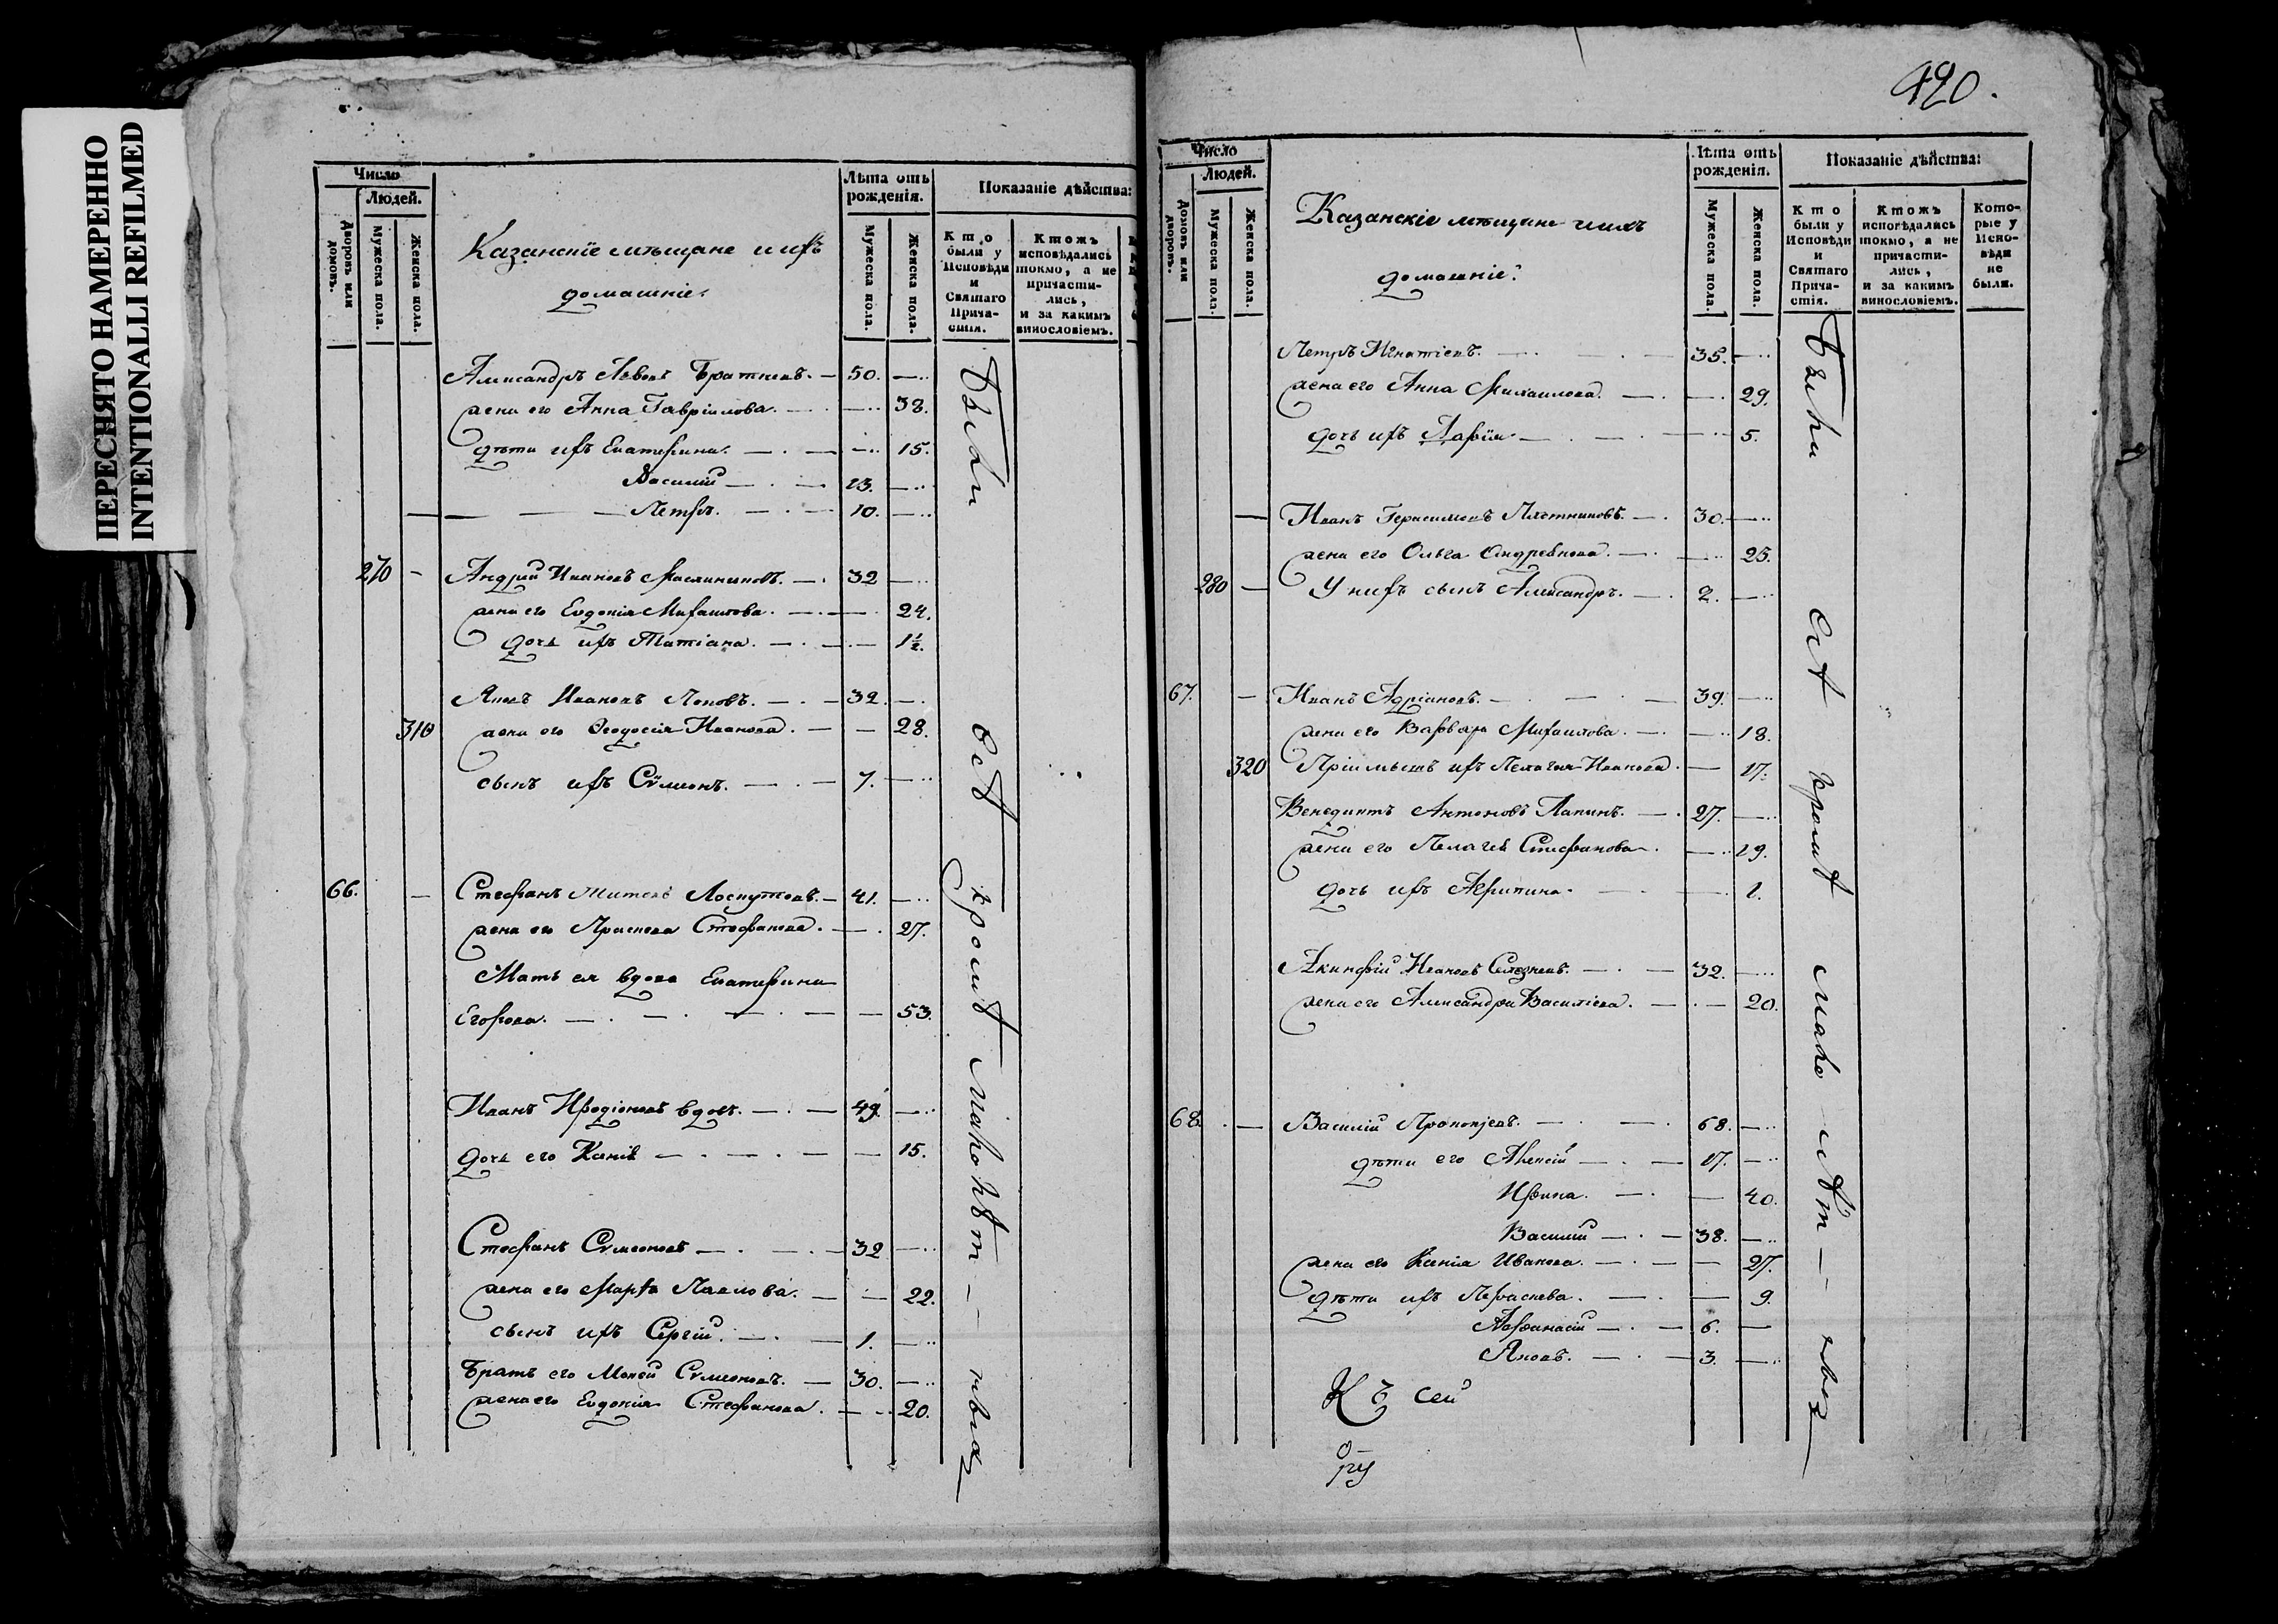 ПЕРЕСНЯТО НАМЕРЕННО
INTENTIONALLI REFILMED
Число
Людей.
Дворовъ или домовъ.
Мужеска пола.
Женска пола.
Казанскіе мѣщане и ихъ
домашніе.
Лѣта отъ рожденія.
Мужеска пола.
Женска пола.
Показаніе дѣйства:
Кто были у Исповѣди и Святаго Прича-стія.
Ктожъ исповѣдались токмо, а не причасти-лись, и за какимъ винословіемъ.
Александръ Львовъ Братневъ. — 50.
жена его Анна Гавріилова. — 38.
дѣти ихъ Екатерина. — 15.
Василій — 13.
Петръ. — 10.
270 — Андрей Ивановъ Масленниковъ. — 32
жена его Евдокія Михаилова. — 24.
дочь ихъ Татіана. — 1½.
Яковъ Ивановъ Поповъ. — 32.
310 жена его Ѳеодосія Иванова. — 28.
сынъ ихъ Сѵмеонъ. — 7.
66. — Стефанъ Титовъ Лоскутовъ. — 41.
жена его Праскева Стефанова. — 27.
Мать ея вдова Екатерина
Егорова. — 53.
Иванъ Иродіоновъ вдовъ. — 49.
дочь его Ксенія — 15.
Стефанъ Сѵмеоновъ — 32
жена его Марѳа Павлова. — 22.
сынъ ихъ Сергій. — 1.
Братъ его Моисей Сѵмеоновъ. — 30.
жена его Евдокія Стефанова. — 20.
Были
всѣ
кромѣ
малолѣт
420.
Число
Людей.
Домовъ или дворовъ.
Мужеска пола.
Женска пола.
Казанскіе мѣщане и ихъ
домашніе.
Лѣта отъ рожденія.
Мужеска пола.
Женска пола.
Показаніе дѣйства:
Кто были у Исповѣди и Святаго Прича-стія.
Ктожъ исповѣдались токмо, а не причасти-лись, и за какимъ винословіемъ.
Кото-рые у Испо-вѣди не были.
Петръ Игнатіевъ. — 35.
жена его Анна Михаилова. — 29.
дочь ихъ Дарія — 5.
— Иванъ Герасимовъ Плотниковъ. — 30.
жена его Ольга Андреянова. — 25.
280 — У нихъ сынъ Александръ. — 2.
67. — Иванъ Адріановъ. — 39.
жена его Варвара Михаилова. — 18.
320 Пріимышъ ихъ Пелагія Иванова — 17.
Венедиктъ Антоновъ Лапинъ. — 27.
жена его Пелагея Стефанова. — 19.
дочь ихъ Агрипина. — 1.
Акинфій Ивановъ Селезневъ. — 32.
жена его Александра Василіева. — 20.
68. — Василій Прокопіевъ. — 68.
дѣти его Алексій — 17.
Ирина. — 40.
Василій — 38.
жена его Ксенія Иванова. — 27.
дѣти ихъ Параскева. — 9.
Афанасій — 6.
Яковъ. — 3.
Къ сей
Были
всѣ
кромѣ
мало
лѣт